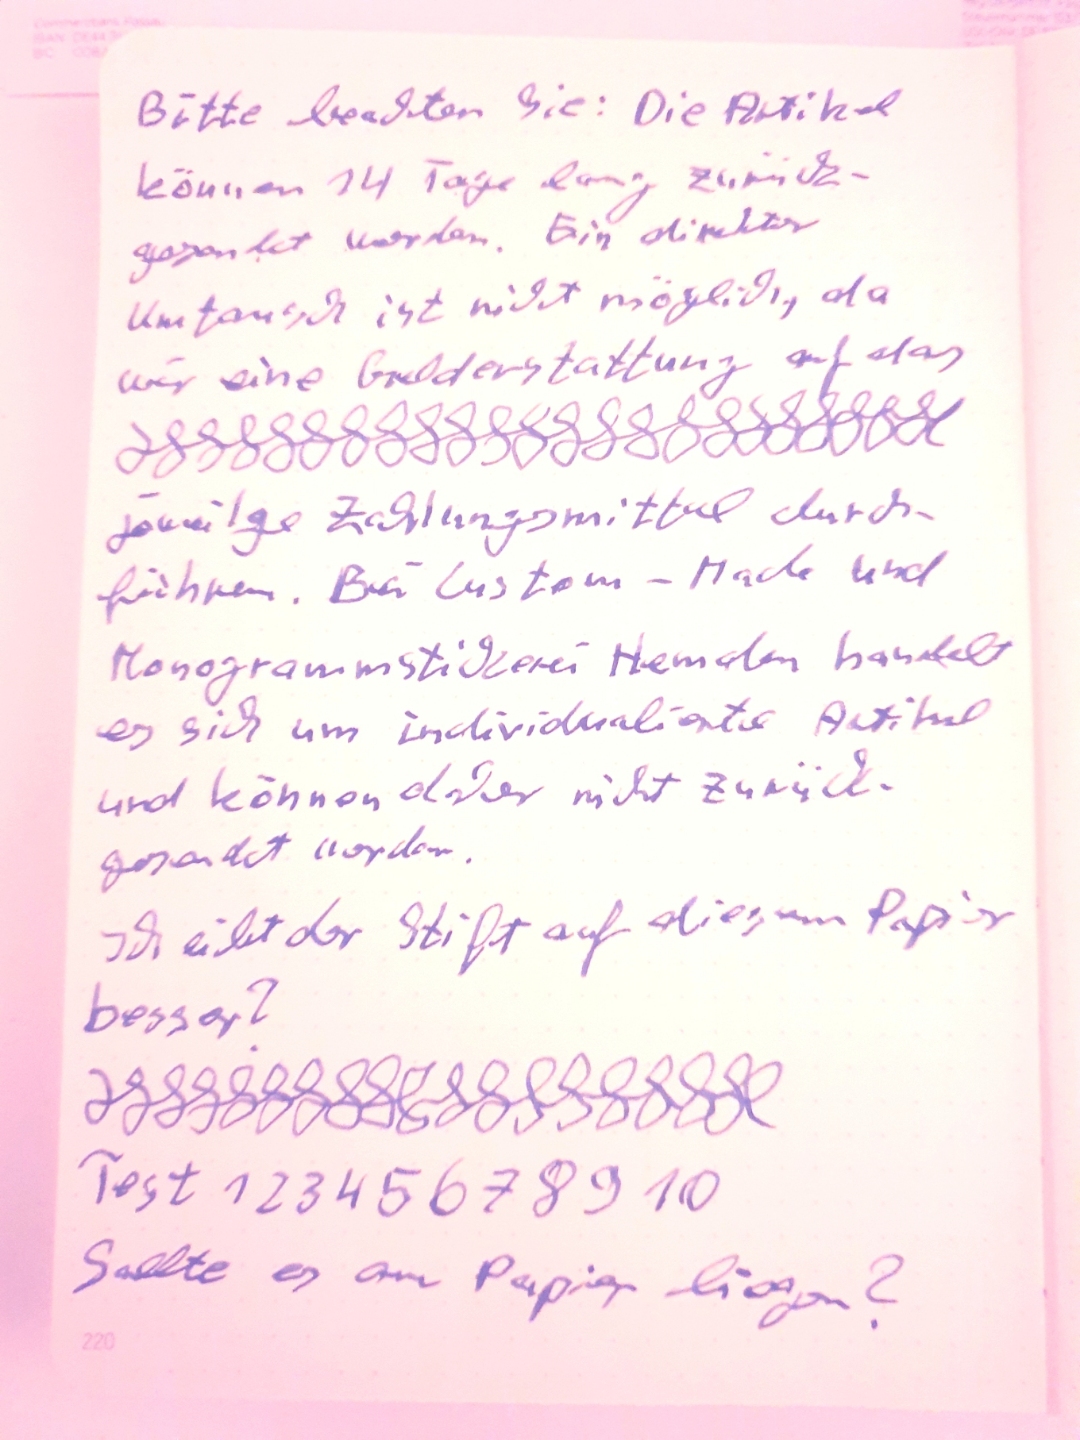 Commerzbank
IBAN
BIC
Bitte beachten Sie: Die Artikel
können 14 Tage lang zurück-
gesendet werden. Ein direkter
Umtausch ist nicht möglich, da
wir eine Gelderstattung auf das
jeweilge Zahlungsmittel durch-
führen. Bei Custom - Made und
Monogrammstickerei Hemden handelt
es sich um individualierte Artikel
und können daher nicht zurück-
gesendet werden.
der Stift auf diesem Papier
besser?
Test 1 2 3 4 5 6 7 8 9 10
Sollte es am Papier liegen?
220